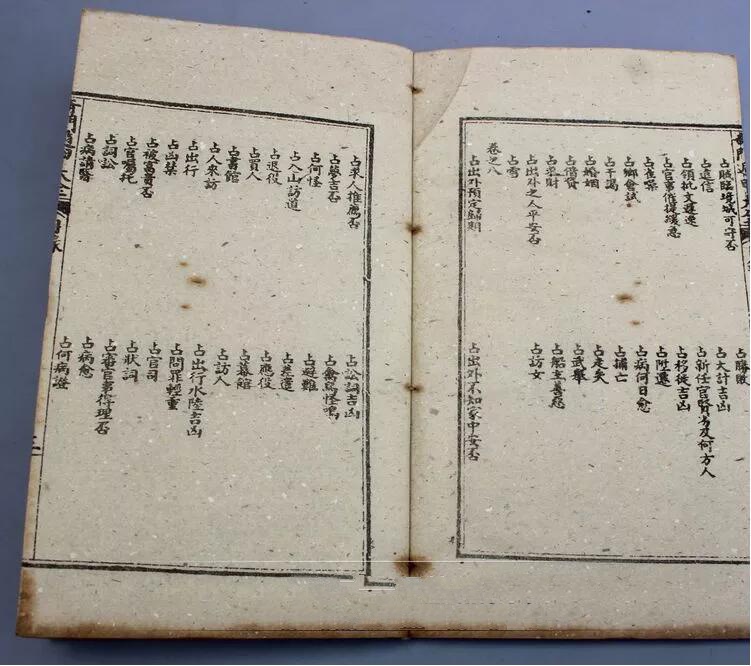 占賊臨境城可守否
占勝敗
占遠信
占大計吉凶
占領批文遲速
占新任官賢劣及何方人
占官事催提緩急
占移徙吉凶
占夜
占陞遷
占鄉會試
占病何日愈
占干謁
占捕亡
占婚姻
占走失
占借貸
占武舉
占求財
占船主善惡
占出外之人平安否
占訪女
占雪
卷之八
占出外預定歸期
占出外不知家中安否
占求人推薦否
占訟詞吉凶
占夢吉否
占禽鳥怪鳴
占何怪
占避難
占入山訪道
占差遣
占退役
占應役
占買人
占幕館
占書館
占訪人
占人來訪
占出行水陸吉凶
占出行
占問罪輕重
占凶禁
占官司
占被否
占狀詞
占官囑托
占審官事得理否
占詞訟
占病愈
占病請醫
占何病證